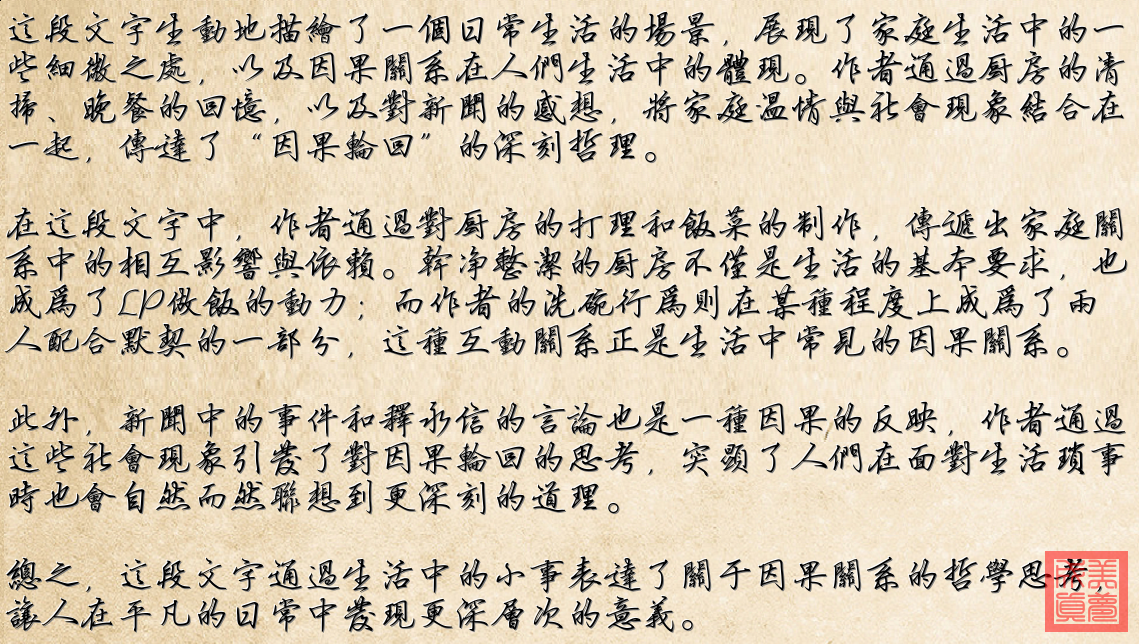 這段文字生動地描繪了一個日常生活的場景，展現了家庭生活中的一
些細微之處，以及因果關系在人們生活中的體現。作者通過厨房的清
掃、晚餐的回憶，以及對新聞的感想，將家庭温情與社會現象結合在
一起，傳達了“因果輪回”的深刻哲理。
在這段文字中，作者通過對厨房的打理和飯菜的制作，傳遞出家庭關
系中的相互影響與依賴。幹净整潔的厨房不僅是生活的基本要求，也
成爲了LP做飯的動力；而作者的洗碗行爲則在某種程度上成爲了兩
人配合默契的一部分，這種互動關系正是生活中常見的因果關系。
此外，新聞中的事件和釋永信的言論也是一種因果的反映，作者通過
這些社會現象引發了對因果輪回的思考，突顯了人們在面對生活瑣事
時也會自然而然聯想到更深刻的道理。
總之，這段文字通過生活中的小事表達了關于因果關系的哲學思考，
讓人在平凡的日常中發現更深層次的意義。